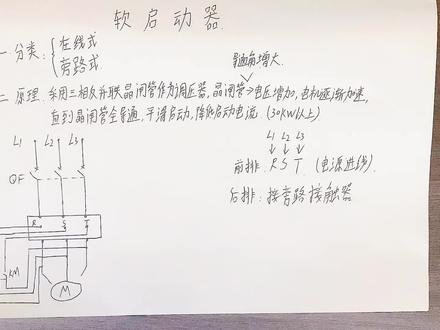 软启动器
一 分类: { 在线式
旁路式
导通角增大.
二 原理. 采用三相反并联晶闸管作为调压器, 晶闸管→电压增加, 电机逐渐加速,
直到晶闸管全导通, 平滑启动, 降低启动电流. (30KW以上)
L1 L2 L3
前排. R S T (电源进线).
后排: 接旁路接触器
L1 L2 L3
QF
R S T
KM
M